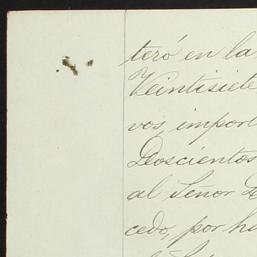 teró en la
Veintisiete
vos, import
Doscientos
al Señor D
cedo, por ha